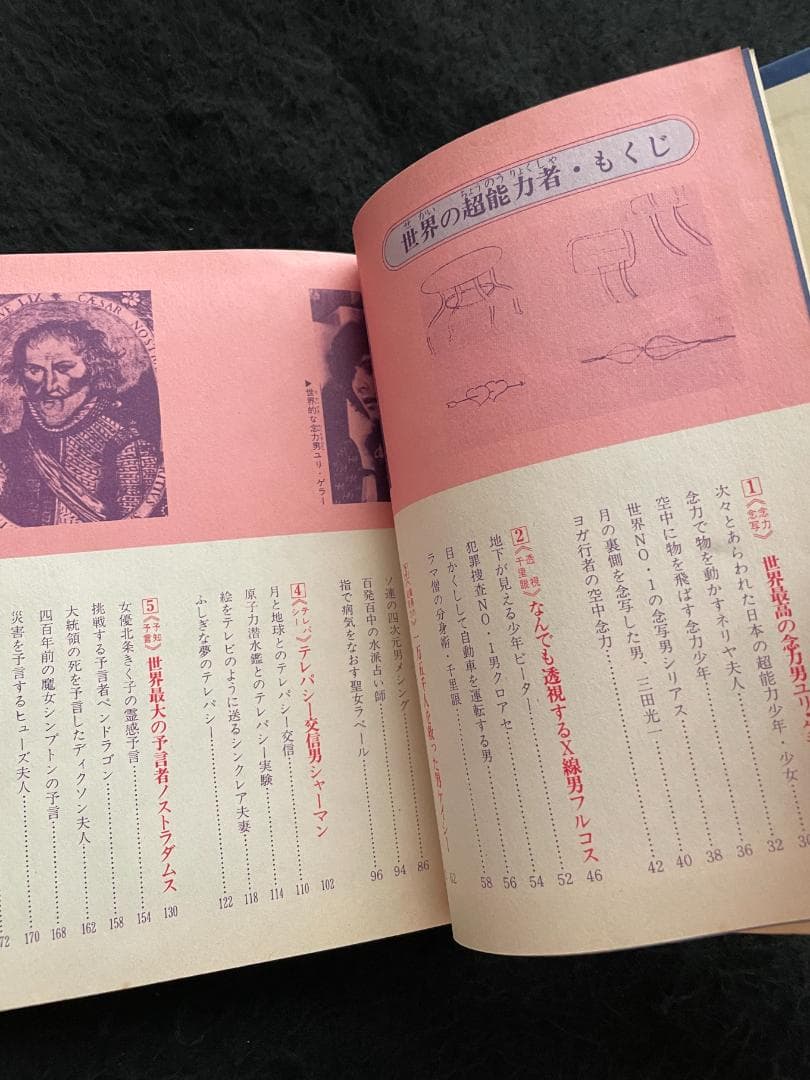 世界の超能力者・もくじ
せかい ちょうのうりょくしゃ
1 《念力 念写》 世界最高の念力男ユリ・ゲ
30
次々とあらわれた日本の超能力少年・少女 32
念力で物を動かすネリヤ夫人 36
空中に物を飛ばす念力少年 38
世界NO・1の念写男シリアス 40
月の裏側を念写した男、三田光一 42
ヨガ行者の空中念力 46
2 《透視 千里眼》 なんでも透視するX線男フルコス 52
地下が見える少年ピーター 54
犯罪捜査NO・1男クロアセ 56
目かくしして自動車を運転する男 58
ラマ僧の分身術・千里眼 62
ソ連の四次元男メシング 86
百発百中の水派占い師 94
指で病気をなおす聖女ラベール 96
4 《テレパシー》 テレパシー交信男シャーマン 102
月と地球とのテレパシー交信 110
原子力潜水鑑とのテレパシー実験 114
絵をテレビのように送るシンクレア夫妻 118
ふしぎな夢のテレパシー 122
5 《予知 予言》 世界最大の予言者ノストラダムス 130
女優北条きく子の霊感予言 154
挑戦する予言者ペンドラゴン 158
大統領の死を予言したディクソン夫人 162
四百年前の魔女シンプトンの予言 168
災害を予言するヒューズ夫人 170
72
▶世界的な念力男ユリ・ゲラー
NE LIX CÆSAR NOSTR